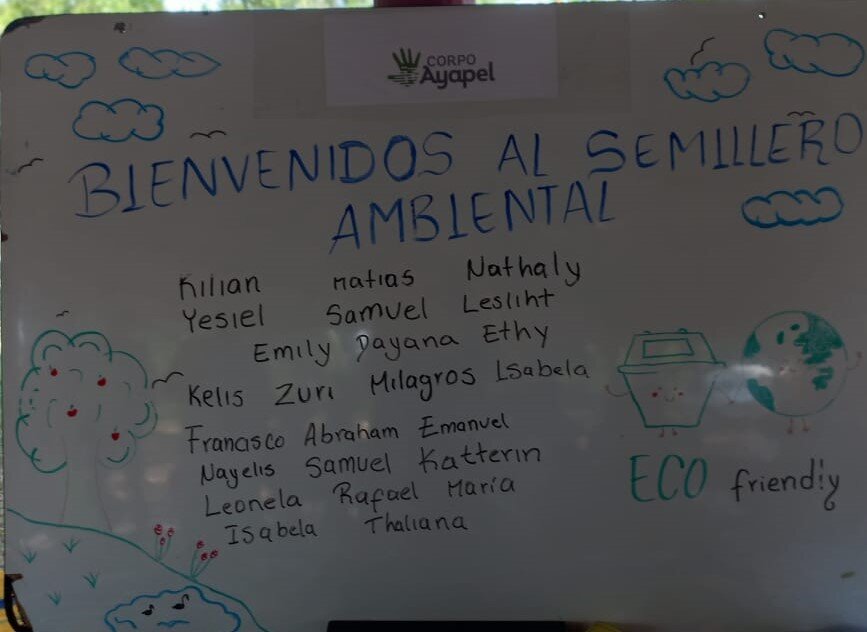 CORPO
Ayapel
BIENVENIDOS AL SEMILLERO
AMBIENTAL
Kilian Matias Nathaly
Yesiel Samuel Lesliht
Emily Dayana Ethy
Kelis Zuri Milagros Isabela
Francisco Abraham Emanuel
Nayelis Samuel Katterin
Leonela Rafael María
Isabela Thaliana
ECO friendly